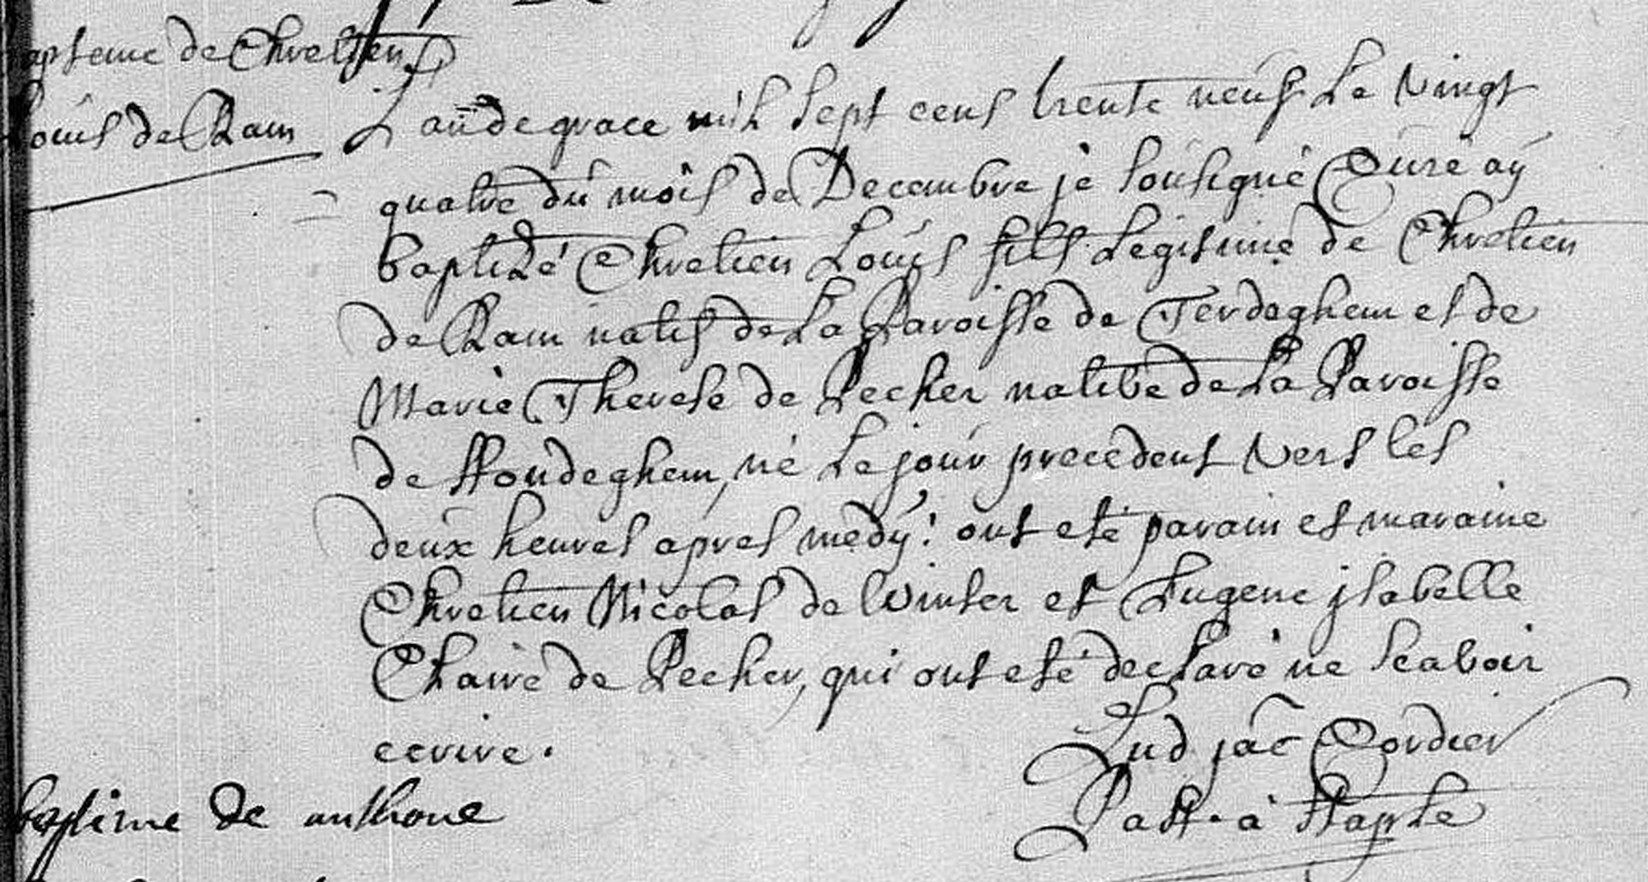 apteme de Chretien
Louis de Ram
L'an de grace mil sept cens trente neuf le vingt
quatre du mois de Decembre je sousigné Curé aÿ
baptizé Chretien Louis fils legitime de Chretien
de Ram natif de la Paroisse de Terdeghem et de
Marie Therese de Pecker native de la Paroisse
de Hondeghem, né le jour precedent vers les
deux heures apres medÿ: ont eté parain et maraine
Chretien Nicolas de Winter et Eugene jsabelle
Claire de Pecker, qui ont eté declaré ne scavoir
ecrire.
Lud jac Cordier
Past. à Staple
baptime de anthone